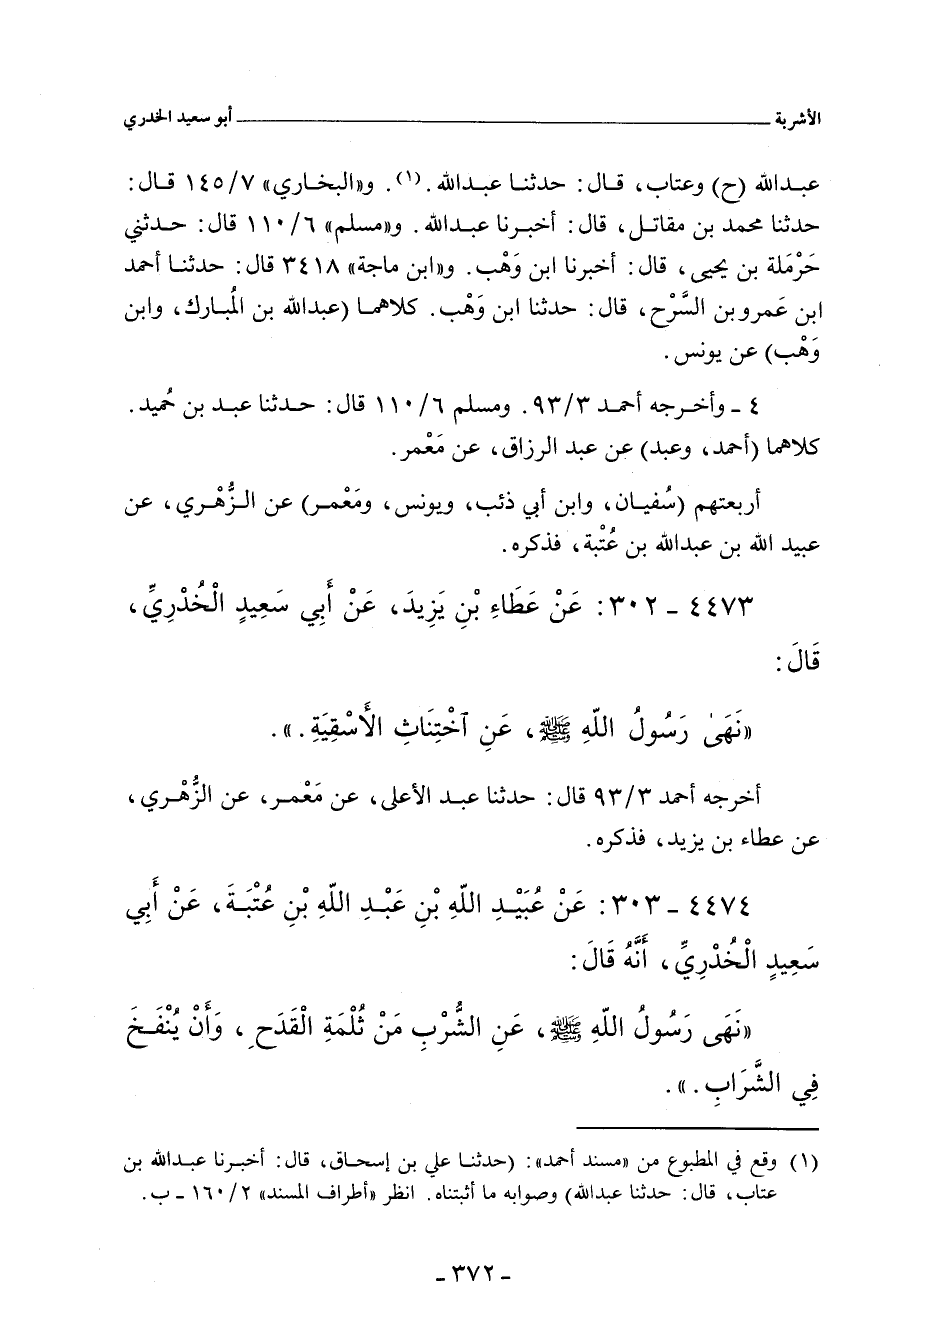 الأشربة ـــــــــــــــ أبو سعيد الخدري
عبدالله (ح) وعتاب، قال: حدثنا عبدالله.(١). و«البخاري» ١٤٥/٧ قال:
حدثنا محمد بن مقاتل، قال: أخبرنا عبدالله. و«مسلم» ١١٠/٦ قال: حدثني
حَرْمَلة بن يحيى، قال: أخبرنا ابن وَهْب. و«ابن ماجة» ٣٤١٨ قال: حدثنا أحمد
ابن عَمرو بن السَّرْح، قال: حدثنا ابن وَهْب. كلاهما (عبدالله بن المُبارك، وابن
وَهْب) عن يونس.
٤ ـ وأخرجه أحمد ٩٣/٣. ومسلم ١١٠/٦ قال: حدثنا عبد بن حُميد.
كلاهما (أحمد، وعبد) عن عبد الرزاق، عن مَعْمر.
أربعتهم (سُفيان، وابن أبي ذئب، ويونس، ومَعْمر) عن الزُّهْري، عن
عبيد الله بن عبدالله بن عُتْبة، فذكره.
٤٤٧٣ ـ ٣٠٢: عَنْ عَطَاءِ بْنِ يَزِيدَ، عَنْ أَبِي سَعِيدٍ الْخُدْرِيِّ،
قَالَ:
«نَهَىٰ رَسُولُ اللّهِ ﷺ، عَنِ ٱخْتِنَاثِ الأَسْقِيَةِ.».
أخرجه أحمد ٩٣/٣ قال: حدثنا عبد الأعلى، عن مَعْمر، عن الزُّهْري،
عن عطاء بن يزيد، فذكره.
٤٤٧٤ ـ ٣٠٣: عَنْ عُبَيْدِ اللّهِ بْنِ عَبْدِ اللّهِ بْنِ عُتْبَةَ، عَنْ أَبِي
سَعِيدٍ الْخُدْرِيِّ، أَنَّهُ قَالَ:
«نَهَى رَسُولُ اللّهِ ﷺ، عَنِ الشُّرْبِ مَنْ ثُلْمَةِ الْقَدَحِ، وَأَنْ يُنْفَخَ
فِي الشَّرَابِ.».
(١) وقع في المطبوع من «مسند أحمد»: (حدثنا علي بن إسحاق، قال: أخبرنا عبدالله بن
عتاب، قال: حدثنا عبدالله) وصوابه ما أثبتناه. انظر «أطراف المسند» ١٦٠/٢ ـ ب.
ـ ٣٧٢ ـ